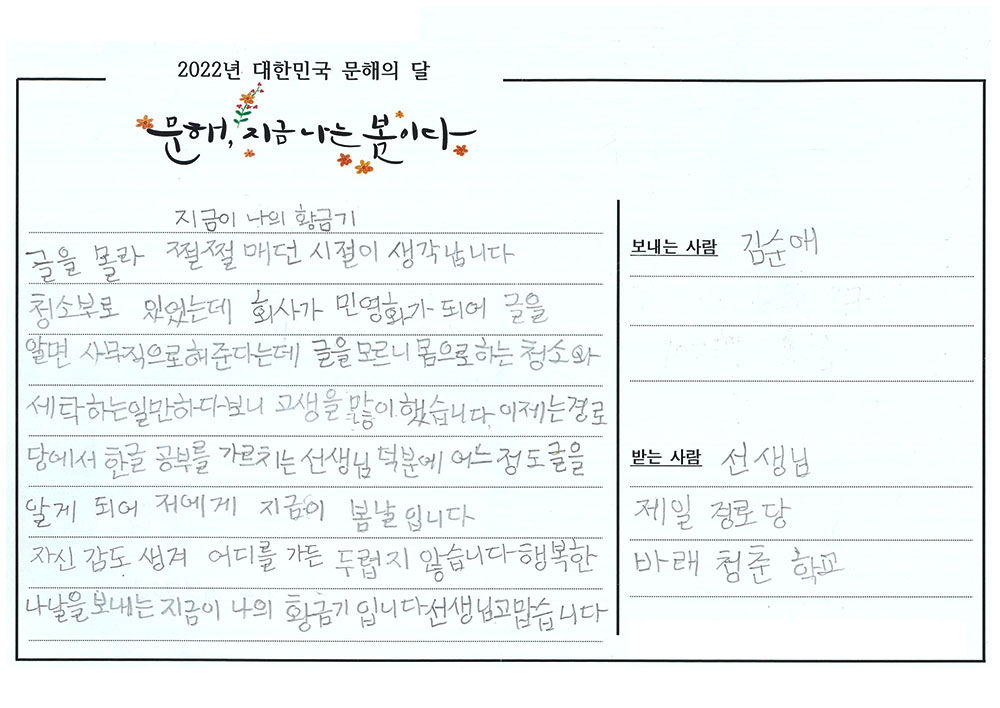 2022년 대한민국 문해의 달
문해, 지금 나는 봄이다
지금이 나의 황금기
글을 몰라 쩔쩔 매던 시절이 생각납니다
청소부로 있었는데 회사가 민영화가 되어 글을
알면 사무직으로해준다는데 글을모르니 몸으로하는 청소와
세탁하는일만하다보니 고생을 많이했습니다. 이제는경로
당에서 한글 공부를 가르치는 선생님 덕분에 어느정도글을
알게 되어 저에게 지금이 봄날입니다
자신감도 생겨 어디를 가든 두렵지 않습니다행복한
나날을보내는지금이 나의 황금기입니다선생님고맙습니다
보내는 사람 김순애
받는 사람 선생님
제일 경로당
바래 청춘 학교